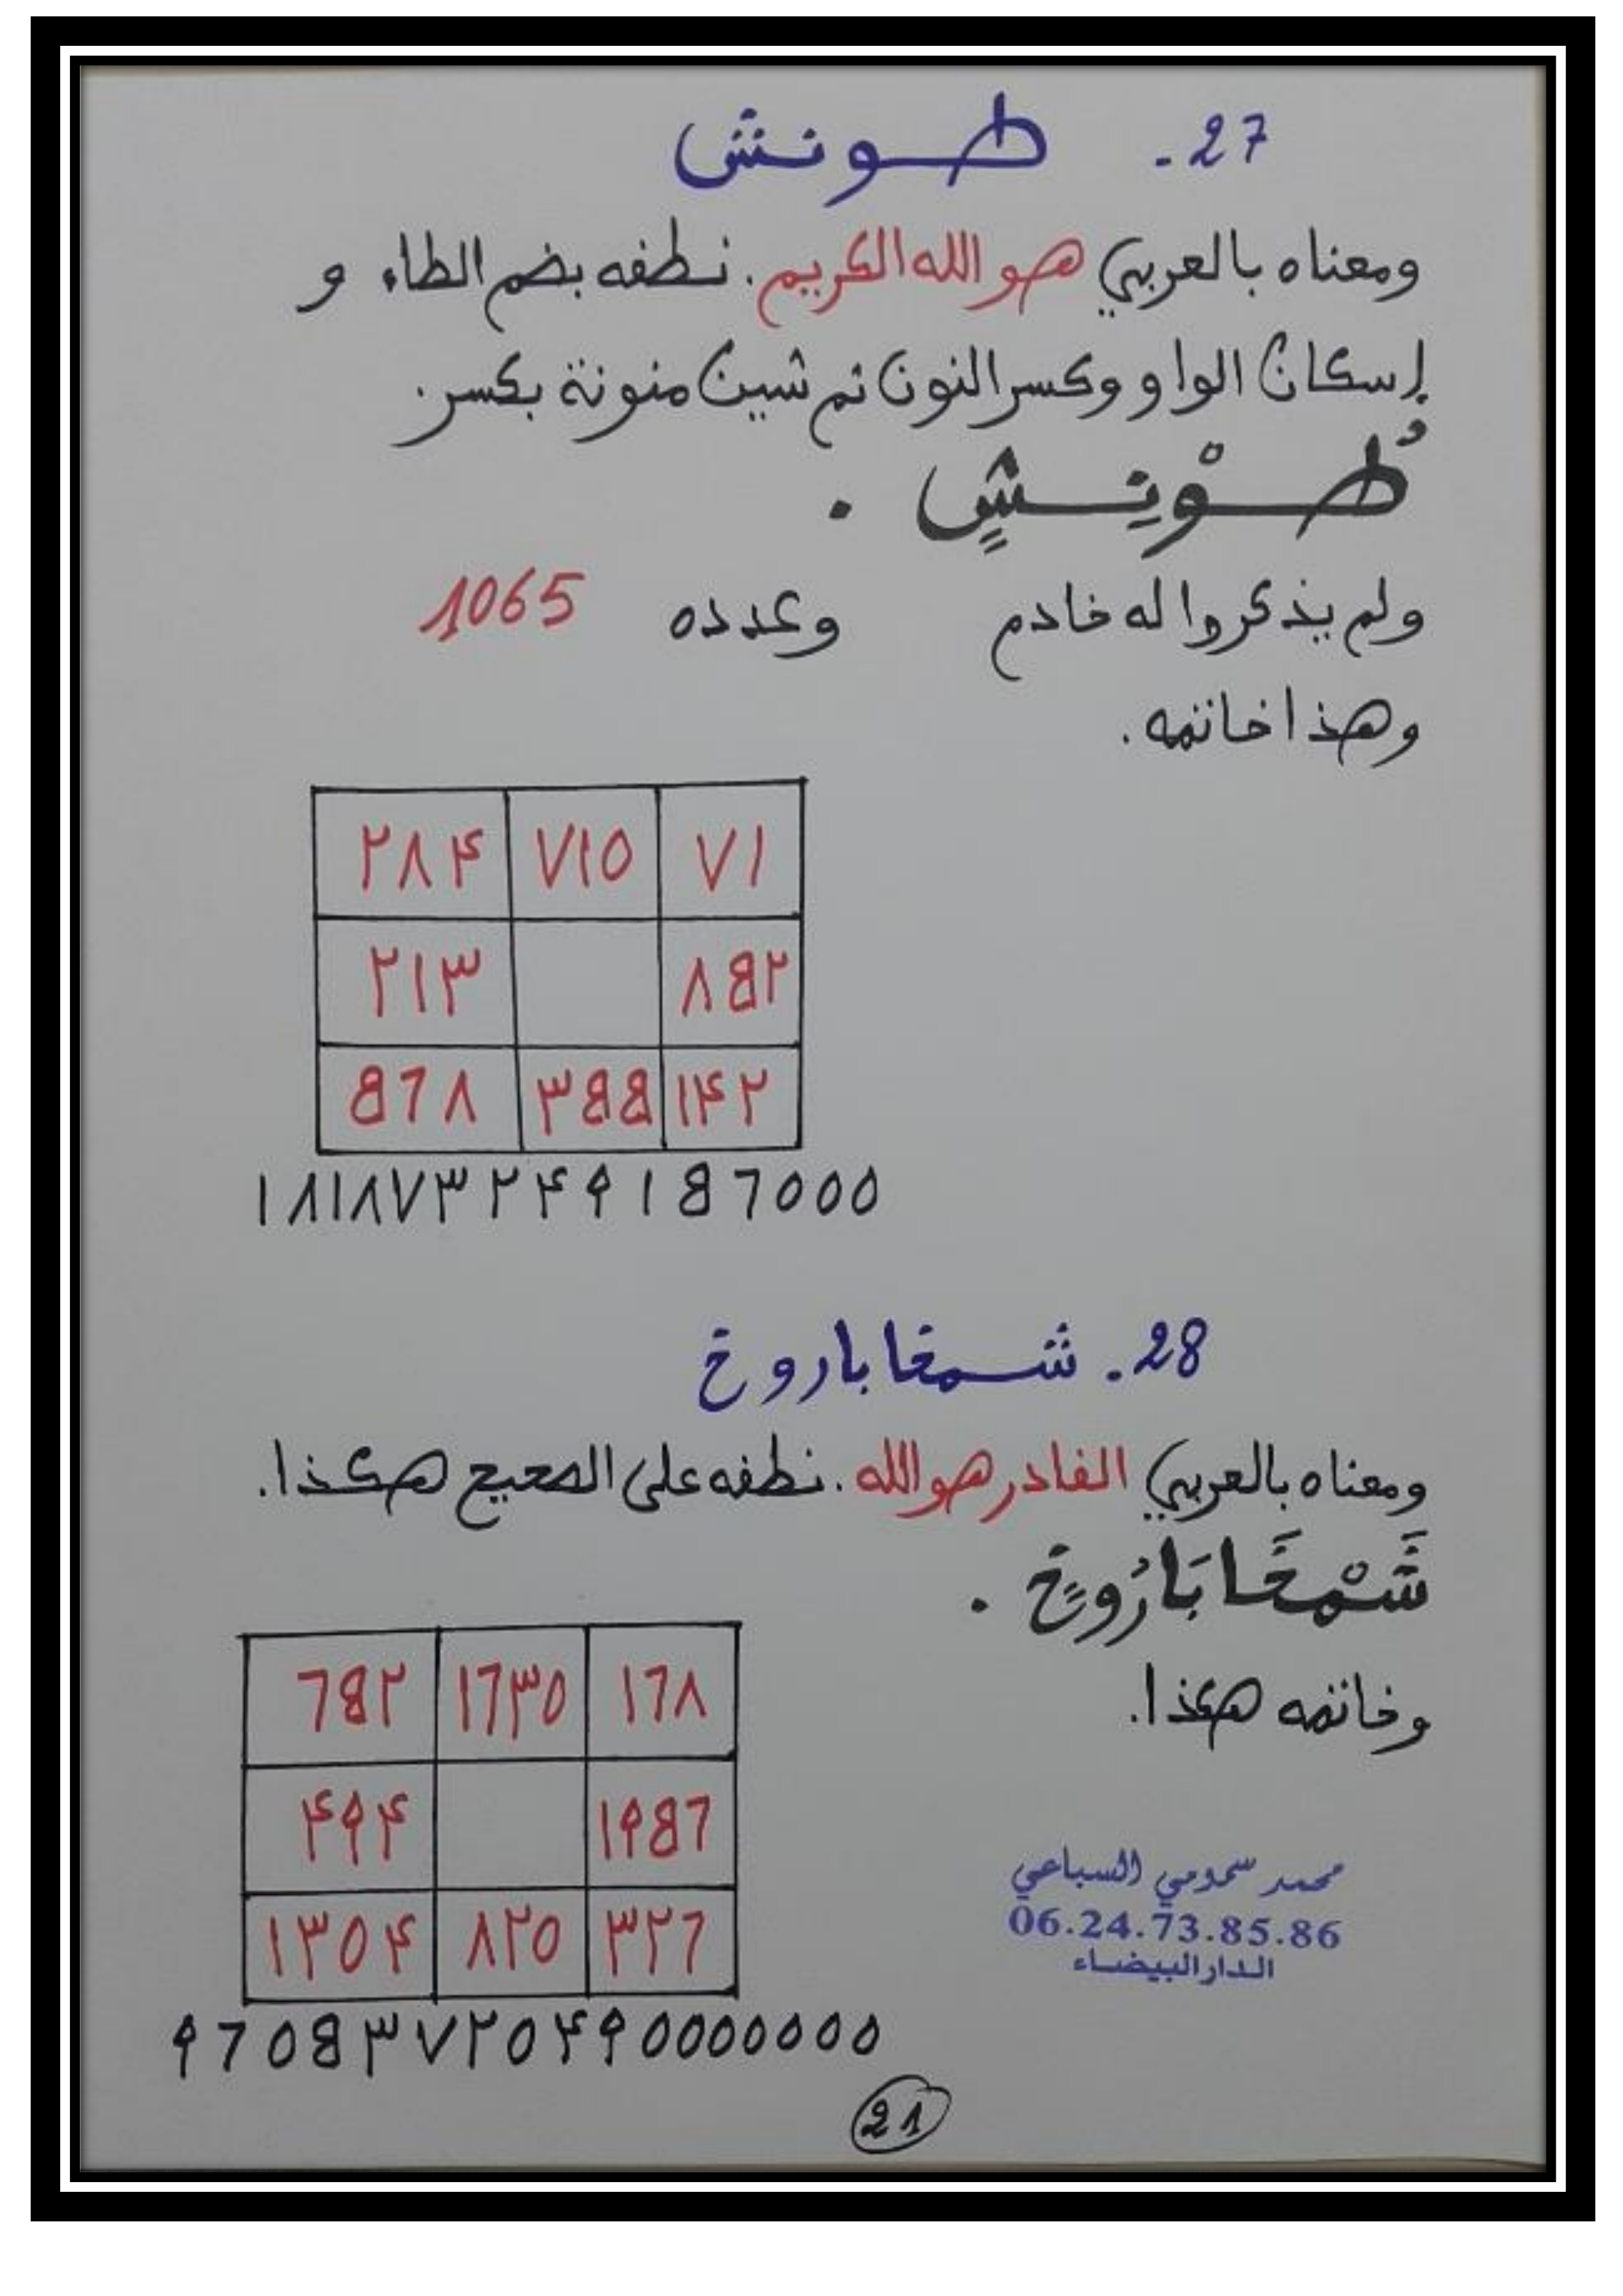 27. طونش
ومعناه بالعربي هو الله الكريم. نطقه بضم الطاء و
إسكان الواو وكسر النون ثم شين منونة بكسر.
طُوْنِشٍ .
ولم يذكروا له خادم وعدده 1065
وهذا خاتمه.
٢٨٤ ٧١٠ ٧١
٢١٣ ٨٥٢
٥٦٨ ٣٥٥ ١٤٢
١٨١٨٧٣٢٤٩١٥٦٠٠٠
28. شمخاباروخ
ومعناه بالعربي القادر هو الله. نطقه على الصحيح هكذا.
شَمْخَابَارُوخٍ .
وخاتمه هكذا.
٦٥٢ ١٦٣٠ ١٦٨
٤٩٤ ١٩٥٦
١٣٠٤ ٨٢٠ ٣٢٦
٩٦٠٥٣٧٢٠٤٩٠٠٠٠٠٠٠
محمد سحومي السباعي
06.24.73.85.86
الدار البيضاء
21